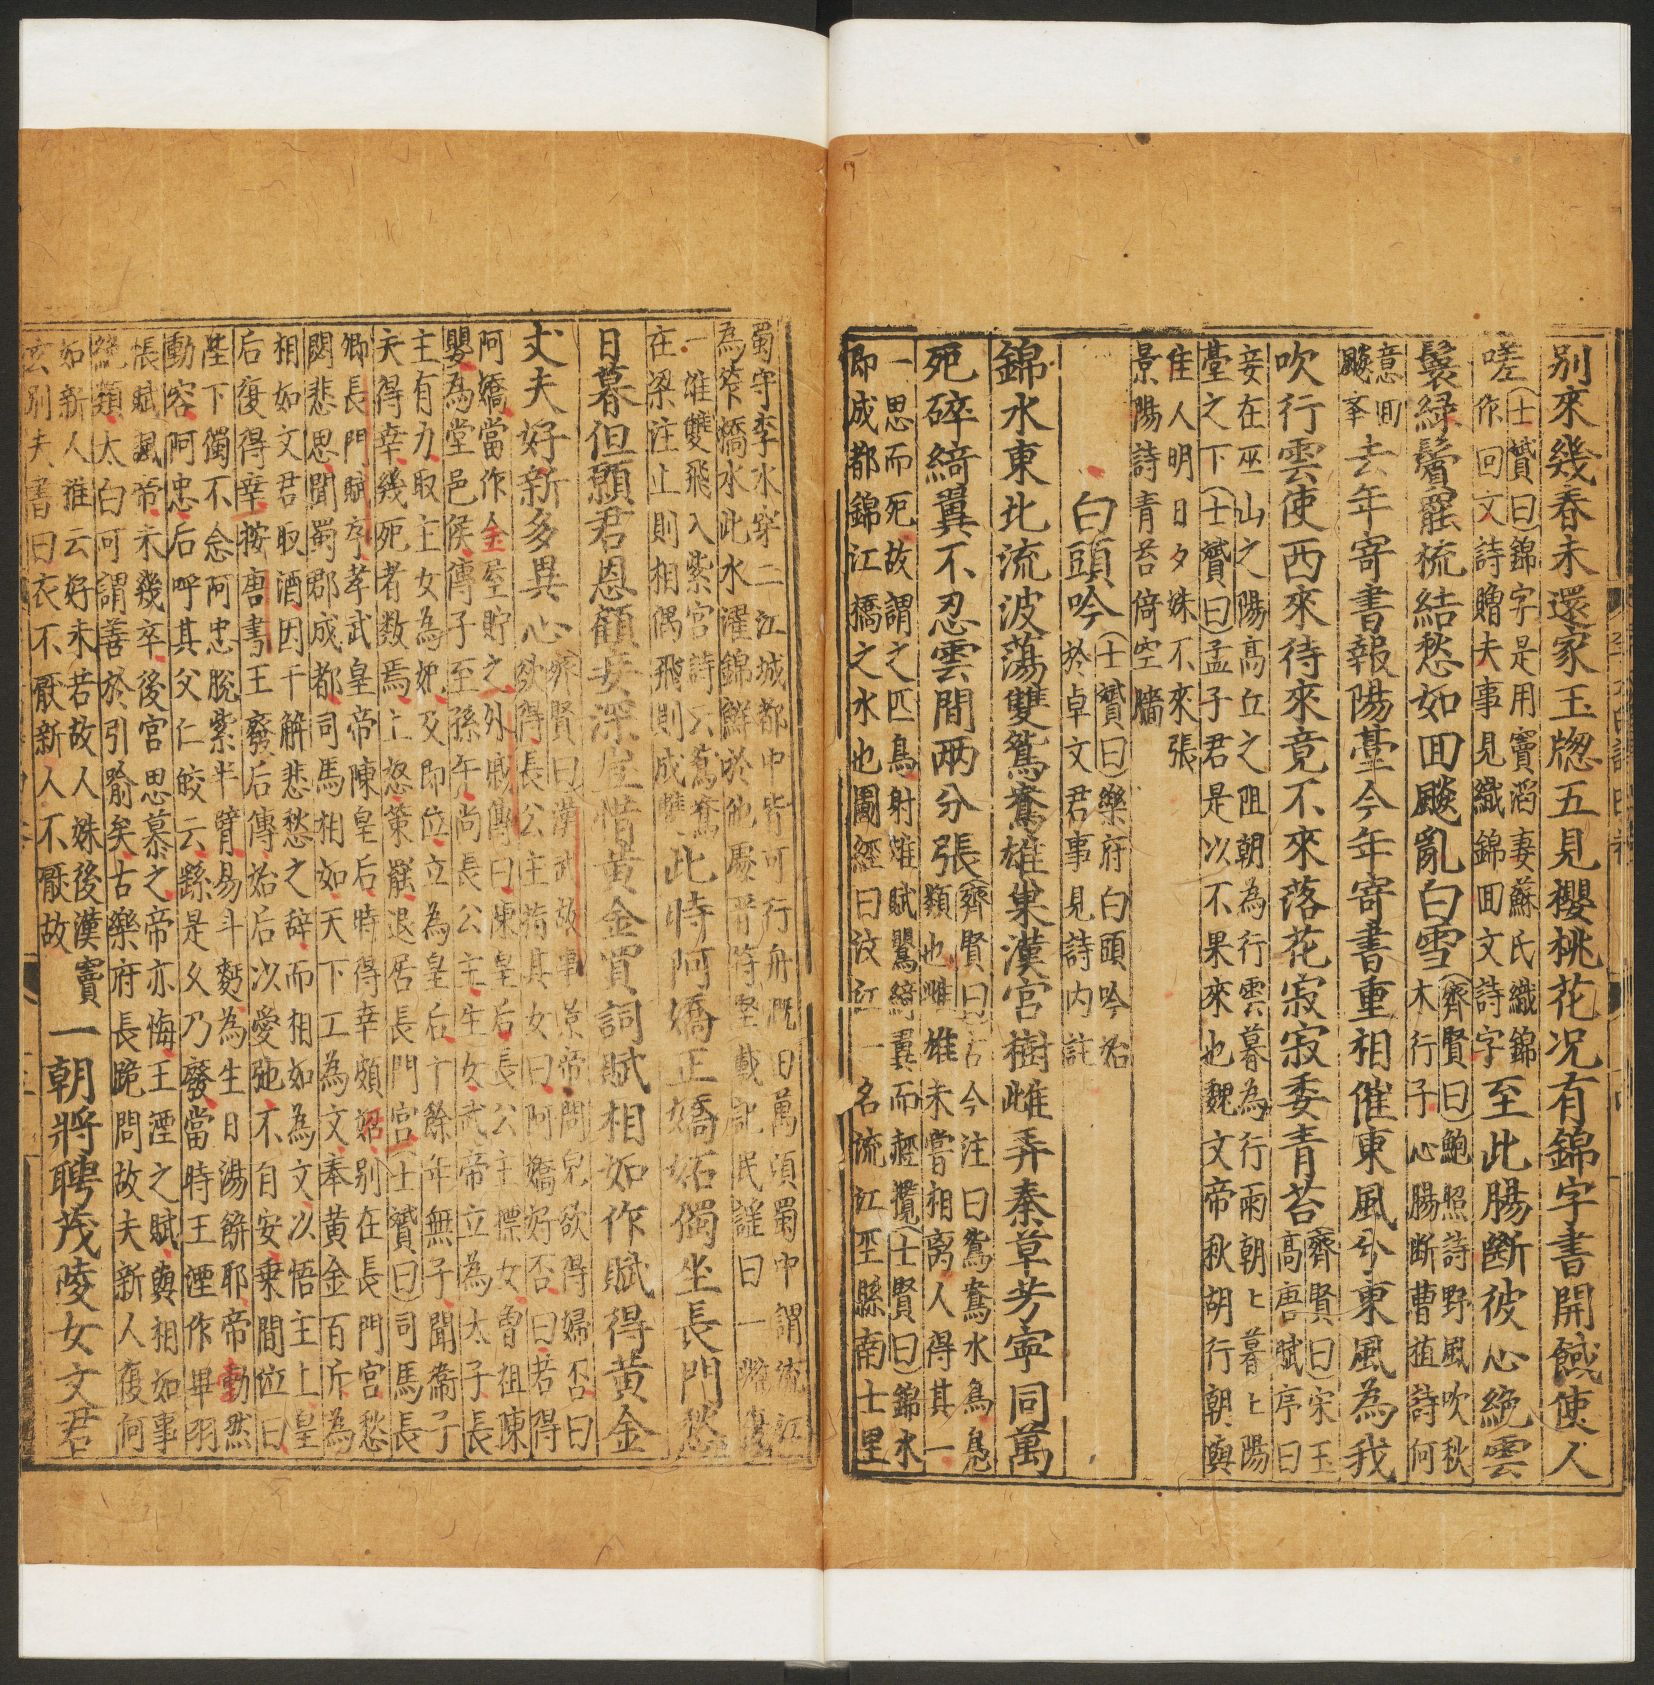 別來幾春未還家玉牕五見櫻桃花况有錦字書開緘使人
嗟
士贇曰錦字是用竇滔妻蘇氏織錦
作回文詩贈夫事見織錦回文詩字
至此腸斷彼心絶雲
鬟緑鬢罷梳結愁如回飈亂白雪
齊賢曰鮑照詩野風吹秋
木行子心腸断曹植詩何
意回
飈夆
去年寄書報陽臺今年寄書重相催東風兮東風為我
吹行雲使西來待來竟不來落花寂寂委青苔
齊賢曰宋玉
高唐賦序曰
妾在巫山之陽高丘之阻朝為行雲暮為行雨朝朝暮暮陽
臺之下士贇曰孟子君是以不果來也魏文帝秋胡行朝與
隹人明日夕姝不來張
景陽詩青苔倚空牆
白頭吟
士贇曰樂府白頭吟始
於卓文君事見詩内註
錦水東北流波蕩雙鴛鴦雄巢漢宫樹雌弄秦草芳寧同萬
死碎綺翼不忍雲間兩分張
齊賢曰古今注曰鴛鴦水鳥鳬
類也雌雄未嘗相离人得其一
一思而死故謂之匹鳥射雉賦鸎綺翼而輕檛士賢曰錦水
即成都錦江橋之水也圖經曰汶江一名流江在縣南士里
蜀守李水穿二江城都中皆可行舟溉田萬頃蜀中謂流江
為笮橋水此水濯錦鮮於他處晋苻堅載記民謡曰一雌復
一雄雙飛入紫宫詩云鴛鴦
在梁注止則相偶飛則成雙
此時阿嬌正嬌妬獨坐長門愁
日暮但願君恩顧妾深豈惜黄金買詞賦相如作賦得黄金
丈夫好新多異心
齊賢曰漢武故事景帝問兒欲得婦否曰
欲得長公主指其女曰阿嬌好否曰若得
阿嬌當作金屋貯之外戚傳曰陳皇后長公主嫖女曾祖陳
嬰為堂邑侯傳子至孫午尚長公主生女武帝立為太子長
主有力取主女為妃及即位立為皇后十餘年無子聞衞子
夫得幸幾死者数焉上怒策罷退居長門宫士贇曰司馬長
卿長門賦序孝武皇帝陳皇后時得幸頗妬别在長門宫愁
悶悲思聞蜀郡成都司馬相如天下工為文奉黄金百斤為
相如文君取酒因于解悲愁之辞而相如為文以悟主上皇
后復得幸按唐書王廢后傳始后以愛弛不自安乗間泣曰
陛下獨不念阿忠脫紫半臂易斗麪為生日湯餅耶帝動然
動容阿忠后呼其父仁皎云繇是乆乃廢當時王湮作畢羽
帳賦諷帝未幾卒後宫思慕之帝亦悔王湮之賦與相如事
絶類太白可謂善於引喻矣古樂府長跪問故夫新人復何
如新人雖云好未若故人姝後漢竇
玄別夫書曰衣不厭新人不厭故
一朝將聘茂陵女文君